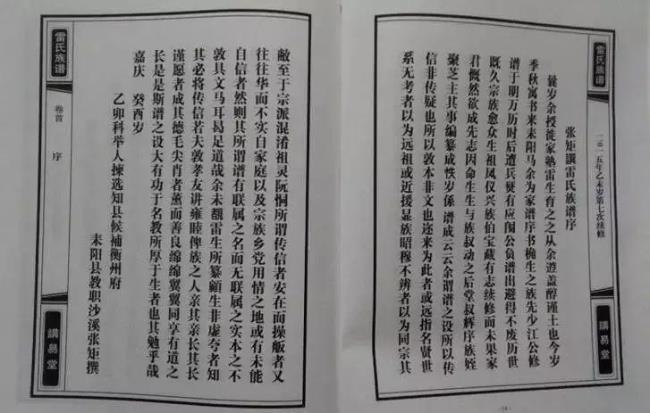 雷氏族谱
二〇一五年乙未岁第七次续修
講易堂
张矩譔雷氏族谱序
岁余授徙家塾雷生育之之从余遊盖醇谨士也今岁
季秋寓书来耒阳马余为家谱序书桅生之族先少江公修
谱于明万历时后遭兵燹有应阁公负谱出避得不废历世
既久宗族愈众生祖凤仪兴族伯宝藏有志续修而未果家
君慨然欲成先志因命生生与族叔动之后堂叔辉序族姪
聚芝主其事编纂成帙岁係谱成云云余谓谱之设所以传
信非传疑也所以敦本非文也迩来为此者或远指名贤世
系无考者以为远祖或近援显族昭穆不辨者以为同宗其
敝至于宗派混淆祖灵阮恫所谓传信者安在而操觚者又
往往华而不实自家庭以及宗族乡党用情之地或有未能
自信者然则其所谓谱有联属之名而无联属之实本之不
敦具文马耳曷足道哉余未覩雷生所纂顾生非虚夸者知
其必将传信若夫敦孝友讲雍睦俾族之人亲其亲长其长
谨愿者成其德毛尖肖者薰而善良绵绵翼翼同享有道之
长是是斯谱之设大有功于名教所厚于生者也其勉乎哉
嘉庆 癸酉岁
乙卯科举人拣选知县候補衡州府
耒阳县教职沙溪张矩撰
雷氏族谱
卷首 序
講易堂